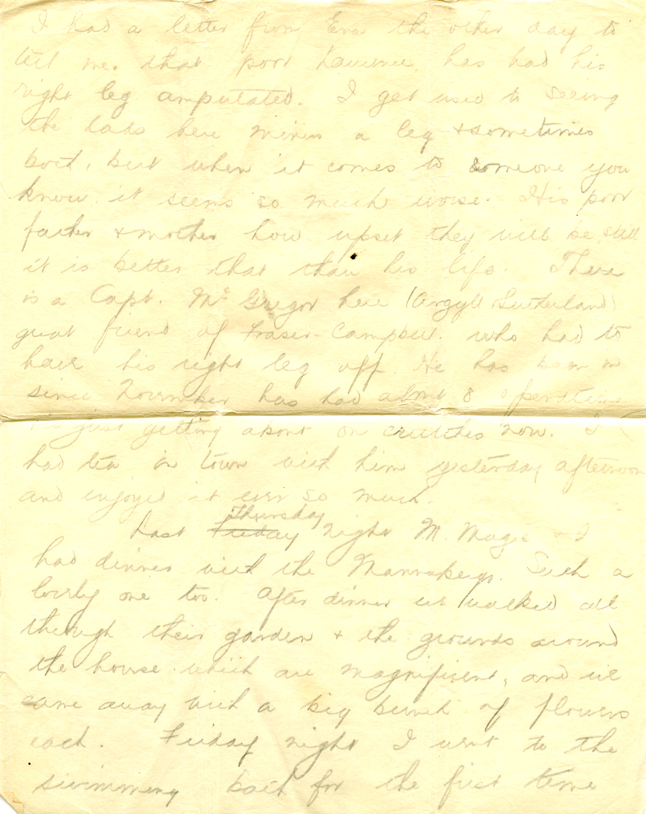 I had a letter from Eva the other day to
tell me that poor Laurence has had his
right leg amputated. I get used to seeing
the lads here minus a leg & sometimes
both, but when it comes to someone you
know it seems so much worse. His poor
father & mother how upset they will be, still
it is better that than his life. There
is a Capt. McGregor here (Argyll Sutherland)
great friend of Fraser-Campbell who had to
have his right leg off. He has been in
since November has had about 8 operations
is just getting about on crutches now. I
had tea in town with him yesterday afternoon
and enjoyed it ever so much.
Last Friday Thursday night M. & I
had dinner with the Such a
lovely one too. After dinner we walked all
through their garden & the grounds around
the house which are magnificent, and we
came away with a big bunch of flowers
each. Friday night I went to the
swimming bath for the first time